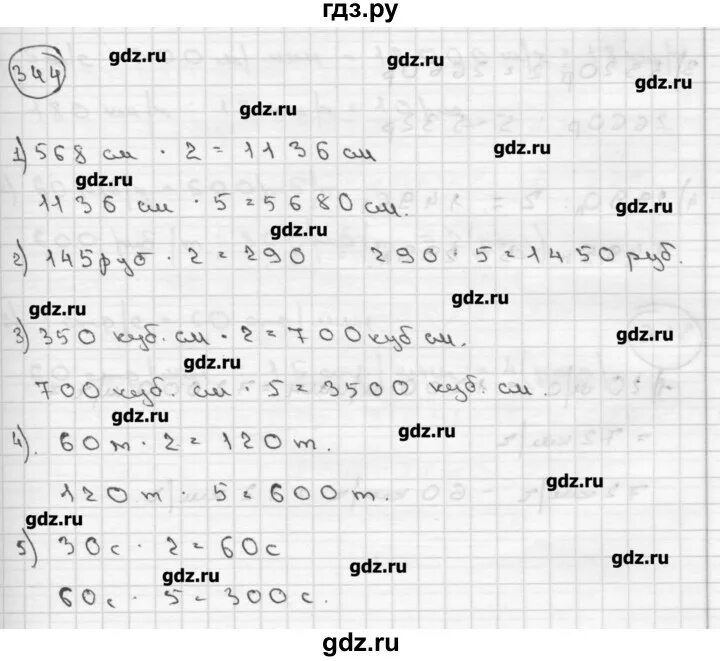 гдз.ру
344
gdz.ru gdz.ru gdz.ru
gdz.ru
1) 568 см · 2 = 1136 см gdz.ru
gdz.ru
1136 см · 5 = 5680 см. gdz.ru
gdz.ru
2) 145 руб · 2 = 290 290 · 5 = 1450 руб.
gdz.ru gdz.ru
3) 350 куб. см · 2 = 700 куб см. gdz.ru
gdz.ru
700 куб. см · 5 = 3500 куб. см.
gdz.ru
4). 60 т · 2 = 120 т. gdz.ru
120 т · 5 = 600 т. gdz.ru
gdz.ru
5) 30 с · 2 = 60 с gdz.ru
gdz.ru gdz.ru
60 с · 5 = 300 с.
gdz.ru